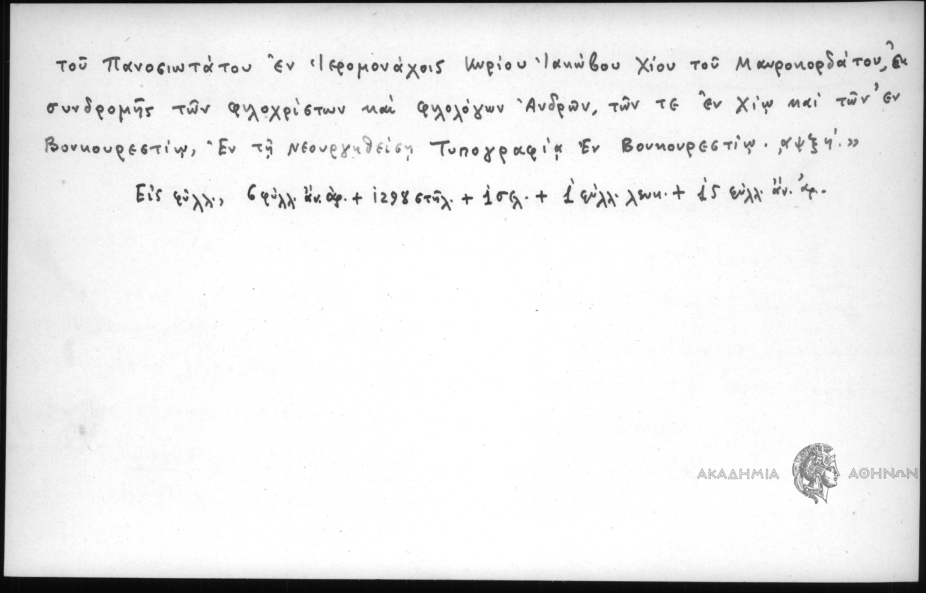 τοῦ Πανοσιωτάτου Ἐν Ἱερομονάχοις Κυρίου Ἰακώβου Χίου τοῦ Μαυροκορδάτου, ἐκ
συνδρομῆς τῶν φιλοχρίστων καὶ φιλολόγων Ἀνδρῶν, τῶν τε Ἐν Χίῳ καὶ τῶν Ἐν
Βουκουρεστίῳ, Ἐν τῇ νεουργηθείσῃ Τυπογραφίᾳ Ἐν Βουκουρεστίῳ. ͵αψξή.»
Εἰς φύλλ., 6 φύλλ. ἄν. ἀρ. + 1298 στῆλ. + 1 σελ. + 1 φύλλ. λευκ. + 15 φύλλ. ἄν. ἀρ.
ΑΚΑΔΗΜΙΑ ΑΘΗΝΩΝ